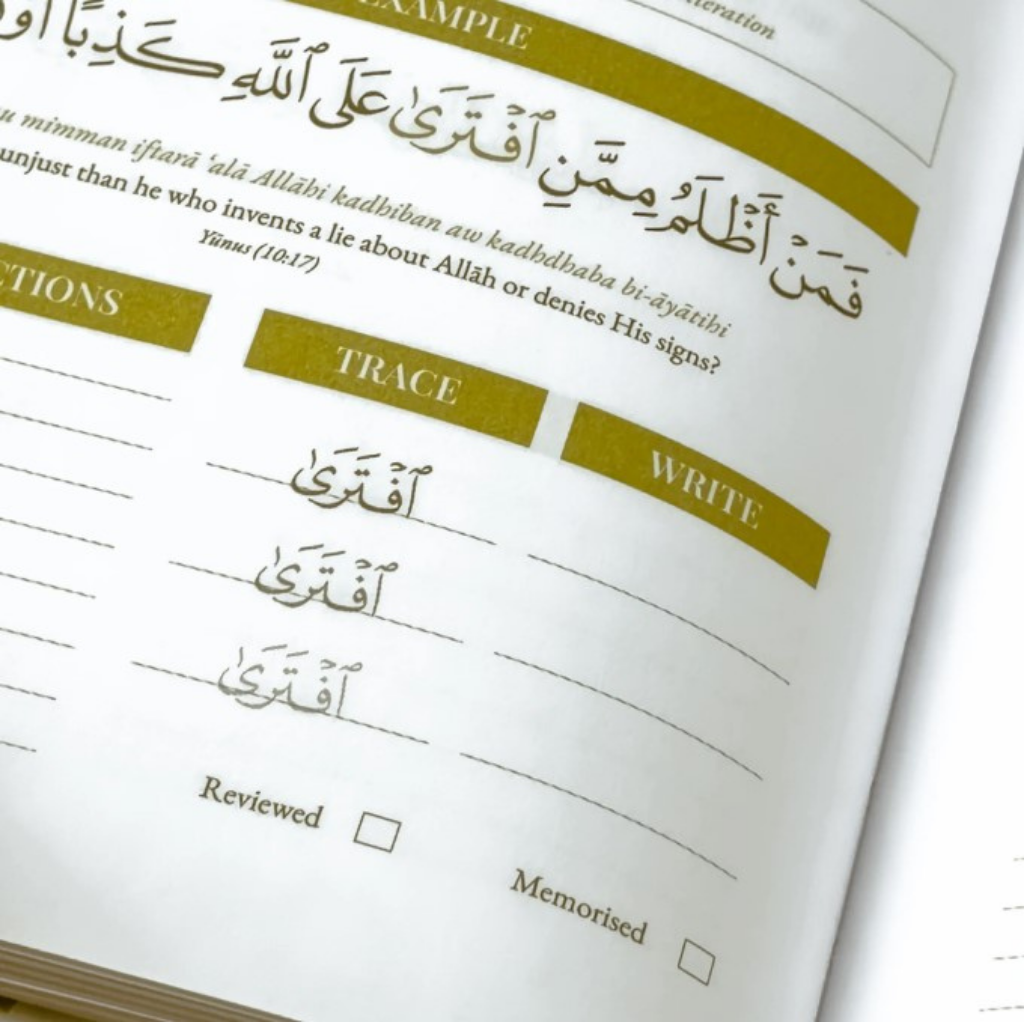 EXAMPLE
فَمَنْ أَظْلَمُ مِمَّنِ ٱفْتَرَىٰ عَلَى ٱللَّهِ كَذِبًا
mimman iftarā ʿalā Allāhi kadhiban aw kadhdhaba bi-āyātihi
unjust than he who invents a lie about Allāh or denies His signs?
Yūnus (10:17)
TRACE
WRITE
ٱفْتَرَىٰ
ٱفْتَرَىٰ
ٱفْتَرَىٰ
Reviewed
Memorised